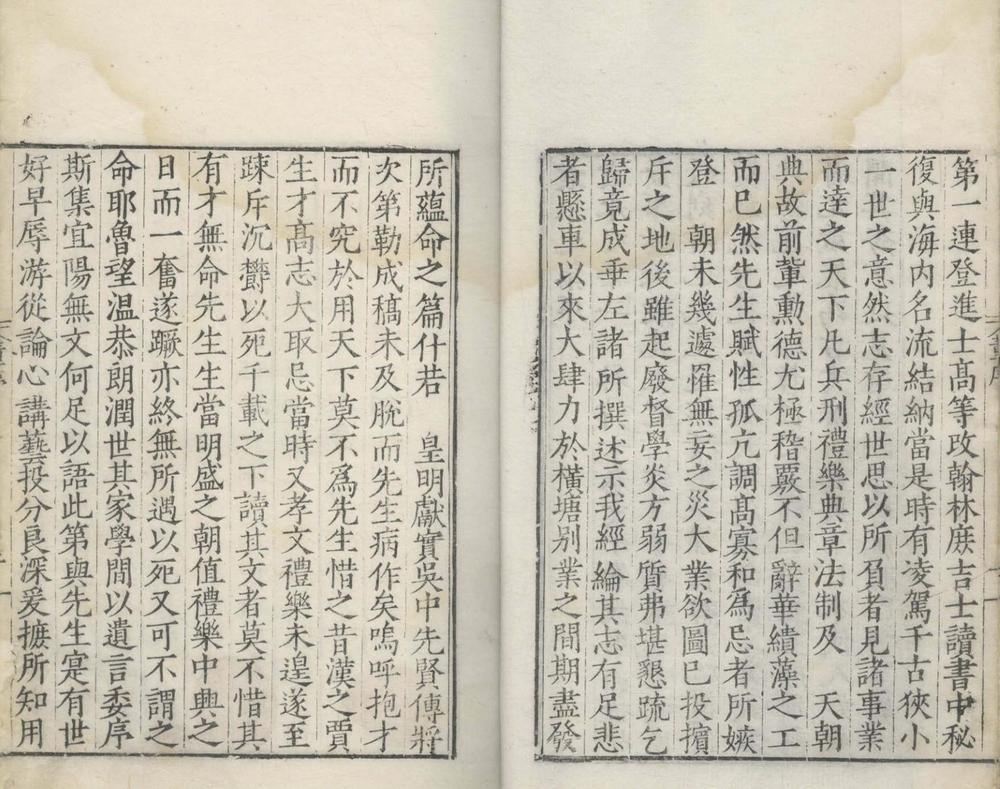 第一連登進士髙等改翰林庻吉士讀書中秘
復與海内名流結納當是時有凌駕千古狹小
一世之意然志存經世思以所負者見諸事業
而逹之天下凡兵刑禮樂典章法制及　天朝
典故前軰勳德尤極稽覈不但辭華繢藻之工
而巳然先生賦性孤亢調髙寡和為忌者所嫉
登　朝未幾遽罹無妄之災大業欲圖巳投擯
斥之地後雖起廢督學炎方弱質弗堪懇疏乞
歸竟成垂左諸所撰述示我經綸其志有足悲
者懸車以來大肆力於橫塘别業之間期盡發
所蘊命之篇什若　皇明獻實吳中先賢傳將
次第勒成稿未及脫而先生病作矣嗚呼抱才
而不究於用天下莫不爲先生惜之昔漢之賈
生才髙志大取忌當時又孝文禮樂未遑遂至
踈斥沉欝以死千載之下讀其文者莫不惜其
有才無命先生生當明盛之朝值禮樂中興之
日而一奮遂蹶亦終無所遇以死又可不謂之
命耶魯望温恭朗潤世其家學間以遺言委序
斯集宜陽無文何足以語此第與先生寔有世
好早辱游從論心講藝投分良深爰摭所知用